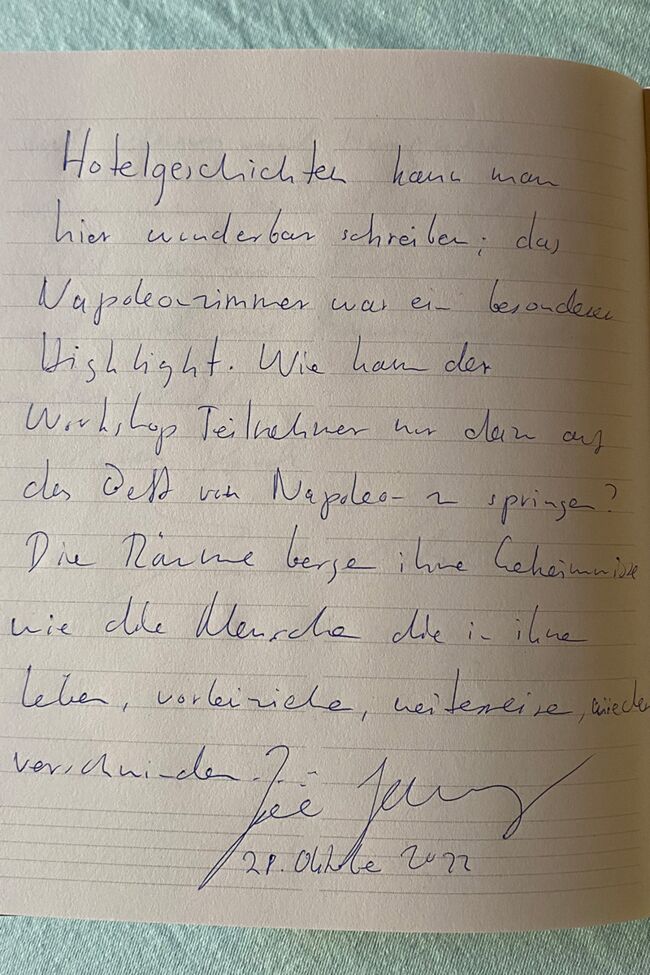 Hotelgeschichten kann man
hier wunderbar schreiben; das
Napoleonzimmer war ein besonderes
Highlight. Wie kam der
Workshop Teilnehmer nur dazu auf
das Bett von Napoleon zu springen?
Die Räume bergen ihre Geheimnisse
wie die Menschen die in ihnen
leben, vorbeiziehen, weiterreisen, wieder
verschwinden.
Oktober 2022